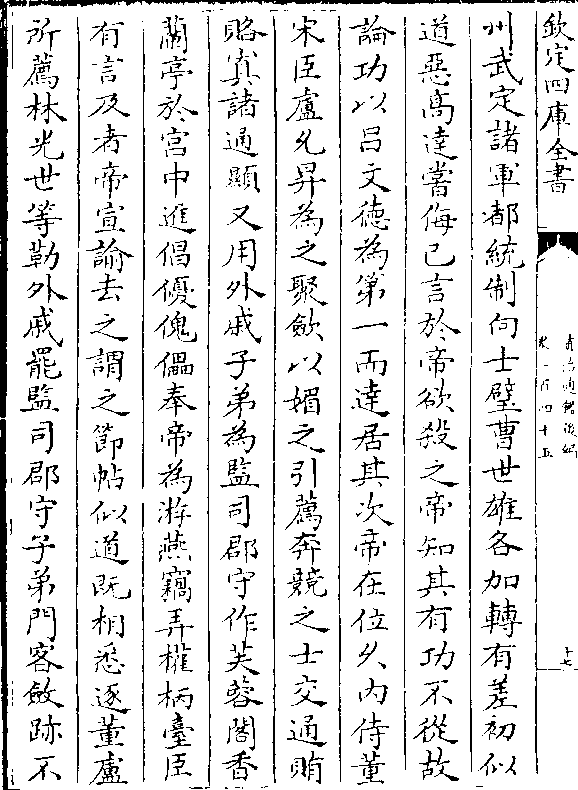 欽定四庫全書
資治通鑑後編
卷一百四十五
十七
州武定諸軍都統制向士璧曹世雄各加轉有差初似
道惡高達嘗侮己言於帝欲殺之帝知其有功不從故
論功以吕文徳為第一而達居其次帝在位久内侍董
宋臣盧允昇為之聚歛以媚之引薦奔競之士交通賄
賂寘諸通顯又用外戚子弟為監司郡守作芙蓉閣香
蘭亭於宫中進倡優傀儡奉帝為游燕竊弄權柄臺臣
有言及者帝宣諭去之謂之節帖似道既相悉逐董盧
所薦林光世等勒外戚罷監司郡守子弟門客斂跡不